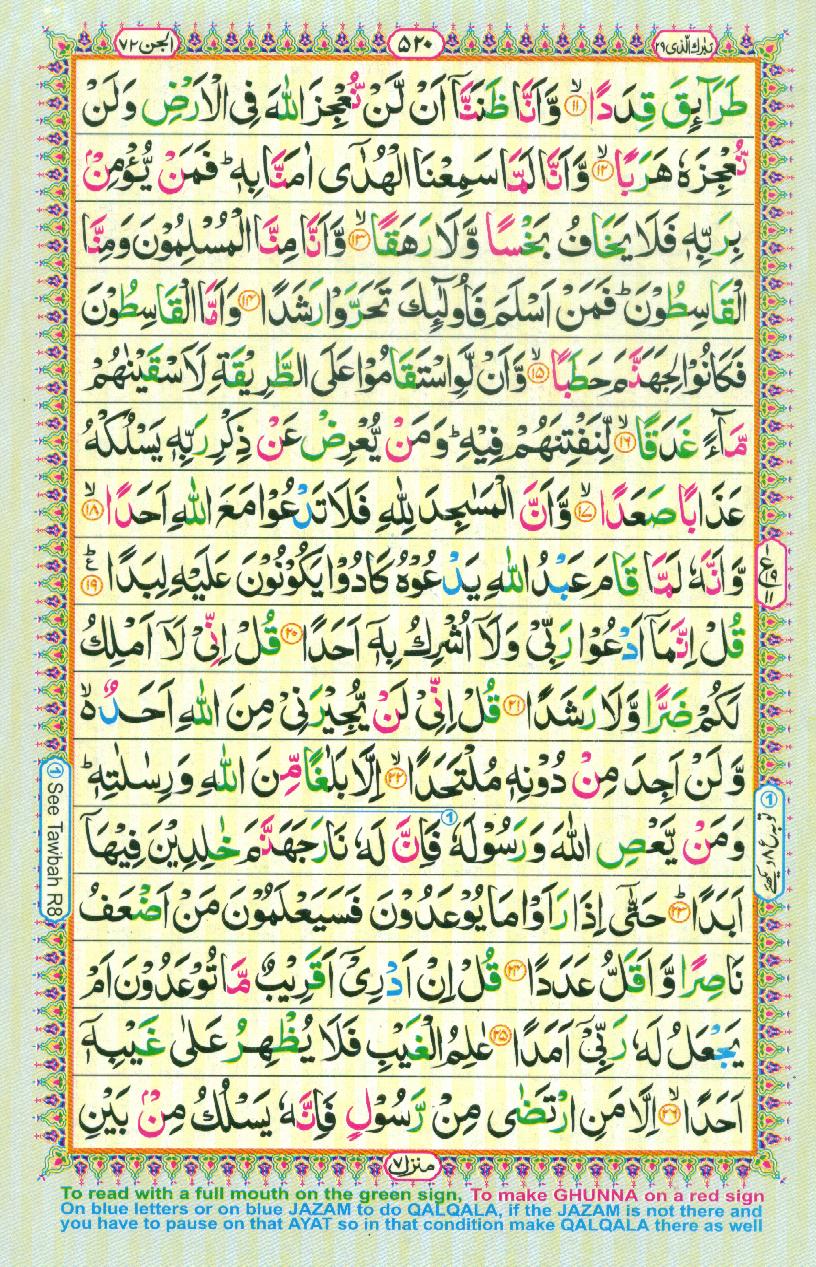 تبرك الذى ۲۹
۵۲۰
الجن ۷۲
طَرَآئِقَ قِدَدًا ۙ‏﴿۱۱﴾ وَّاَنَّا ظَنَنَّاۤ اَنْ لَّنْ نُّعْجِزَ اللّٰهَ فِى الْاَرْضِ وَلَنْ
نُّعْجِزَهٗ هَرَبًا ۙ‏﴿۱۲﴾ وَّاَنَّا لَمَّا سَمِعْنَا الْهُدٰٓى اٰمَنَّا بِهٖ ؕ فَمَنْ يُّؤْمِنْۢ
بِرَبِّهٖ فَلَا يَخَافُ بَخْسًا وَّلَا رَهَقًا ۙ‏﴿۱۳﴾ وَّاَنَّا مِنَّا الْمُسْلِمُوْنَ وَمِنَّا
الْقَاسِطُوْنَ ؕ فَمَنْ اَسْلَمَ فَاُولٰٓئِكَ تَحَرَّوْا رَشَدًا ﴿۱۴﴾ وَاَمَّا الْقَاسِطُوْنَ
فَكَانُوْا لِجَهَنَّمَ حَطَبًا ۙ‏﴿۱۵﴾ وَّاَنْ لَّوِاسْتَقَامُوْا عَلَى الطَّرِيْقَةِ لَاَسْقَيْنٰهُمْ
مَّآءً غَدَقًا ۙ‏﴿۱۶﴾ لِّنَفْتِنَهُمْ فِيْهِ ؕ وَمَنْ يُّعْرِضْ عَنْ ذِكْرِ رَبِّهٖ يَسْلُكْهُ
عَذَابًا صَعَدًا ۙ‏﴿۱۷﴾ وَّاَنَّ الْمَسٰجِدَ لِلّٰهِ فَلَا تَدْعُوْا مَعَ اللّٰهِ اَحَدًا ۙ‏﴿۱۸﴾
وَّاَنَّهٗ لَمَّا قَامَ عَبْدُ اللّٰهِ يَدْعُوْهُ كَادُوْا يَكُوْنُوْنَ عَلَيْهِ لِبَدًا ؕ‏﴿۱۹﴾
قُلْ اِنَّمَاۤ اَدْعُوْا رَبِّىْ وَلَاۤ اُشْرِكُ بِهٖۤ اَحَدًا ﴿۲۰﴾ قُلْ اِنِّىْ لَاۤ اَمْلِكُ
لَكُمْ ضَرًّا وَّلَا رَشَدًا ﴿۲۱﴾ قُلْ اِنِّىْ لَنْ يُّجِيْرَنِىْ مِنَ اللّٰهِ اَحَدٌ ۙ
وَّلَنْ اَجِدَ مِنْ دُوْنِهٖ مُلْتَحَدًا ۙ‏﴿۲۲﴾ اِلَّا بَلٰغًا مِّنَ اللّٰهِ وَرِسٰلٰتِهٖ ؕ
وَمَنْ يَّعْصِ اللّٰهَ وَرَسُوْلَهٗ فَاِنَّ لَهٗ نَارَ جَهَنَّمَ خٰلِدِيْنَ فِيْهَاۤ
اَبَدًا ؕ‏﴿۲۳﴾ حَتّٰٓى اِذَا رَاَوْا مَا يُوْعَدُوْنَ فَسَيَعْلَمُوْنَ مَنْ اَضْعَفُ
نَاصِرًا وَّاَقَلُّ عَدَدًا ﴿۲۴﴾ قُلْ اِنْ اَدْرِىْۤ اَقَرِيْبٌ مَّا تُوْعَدُوْنَ اَمْ
يَجْعَلُ لَهٗ رَبِّىْۤ اَمَدًا ﴿۲۵﴾ عٰلِمُ الْغَيْبِ فَلَا يُظْهِرُ عَلٰى غَيْبِهٖۤ
اَحَدًا ۙ‏﴿۲۶﴾ اِلَّا مَنِ ارْتَضٰى مِنْ رَّسُوْلٍ فَاِنَّهٗ يَسْلُكُ مِنْۢ بَيْنِ
① See Tawbah R8
منزل ۷
To read with a full mouth on the green sign, To make GHUNNA on a red sign
On blue letters or on blue JAZAM to do QALQALA, if the JAZAM is not there and
you have to pause on that AYAT so in that condition make QALQALA there as well